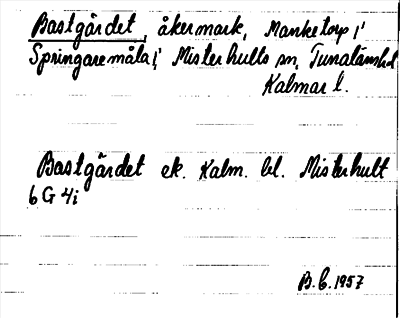 Bastgärdet, åkermark, Manketorp 1'
Springaremåla 1, Misterhults sn, Tunaläns hd
Kalmar l.
Bastgärdet ek. Kalm. bl. Misterhult
6 G 4i
B.C. 1957